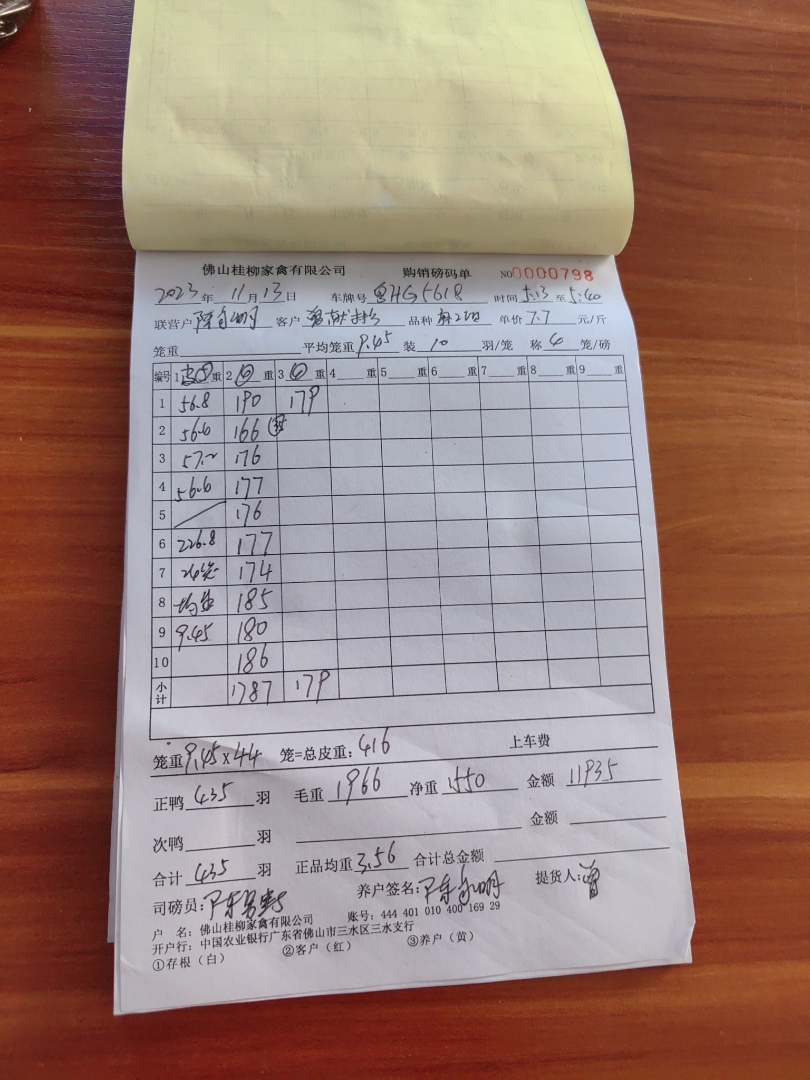 佛山桂柳家禽有限公司 购销磅码单 NO0000798
2023年11月13日 车牌号 粤HG5618 时间 5:13 至 5:40
联营户 客户 品种 单价 7.7 元/斤
笼重 平均笼重 9.45 装 10 羽/笼 称 4 笼/磅
编号 1 重 2 重 3 重 4 重 5 重 6 重 7 重 8 重 9 重
1 56.8 190 179
2 56.6 166
3 57.2 176
4 56.6 177
5 176
6 226.8 177
7 24笼 174
8 均重 185
9 9.45 180
10 186
小计 1787 179
笼重 9.45×44 笼=总皮重: 416 上车费
正鸭 435 羽 毛重 1966 净重 1550 金额 11935
次鸭 羽 金额
合计 435 羽 正品均重 3.56 合计总金额
司磅员: 养户签名: 提货人: 曾
户 名: 佛山桂柳家禽有限公司 账号: 444 401 010 400 169 29
开户行: 中国农业银行广东省佛山市三水区三水支行
①存根（白） ②客户（红） ③养户（黄）